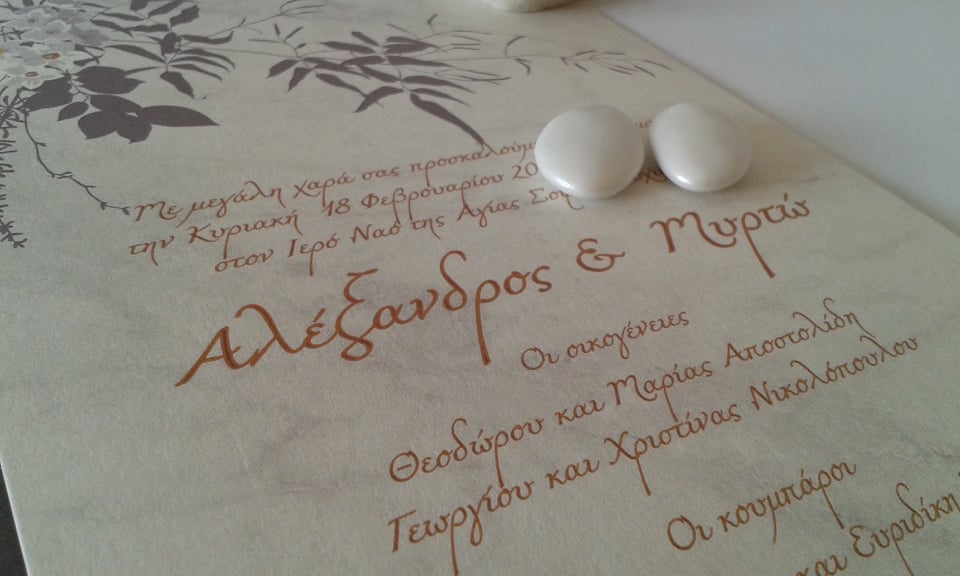 Με μεγάλη χαρά σας προσκαλούμ
την Κυριακή 18 Φεβρουαρίου 20
στον Ιερό Ναό της Αγίας
Αλέξανδρος & Μυρτώ
Οι οικογένειες
Θεοδώρου και Μαρίας Αποστολίδη
Γεωργίου και Χριστίνας Νικολόπουλου
Οι κουμπάροι
και Ευριδίκη